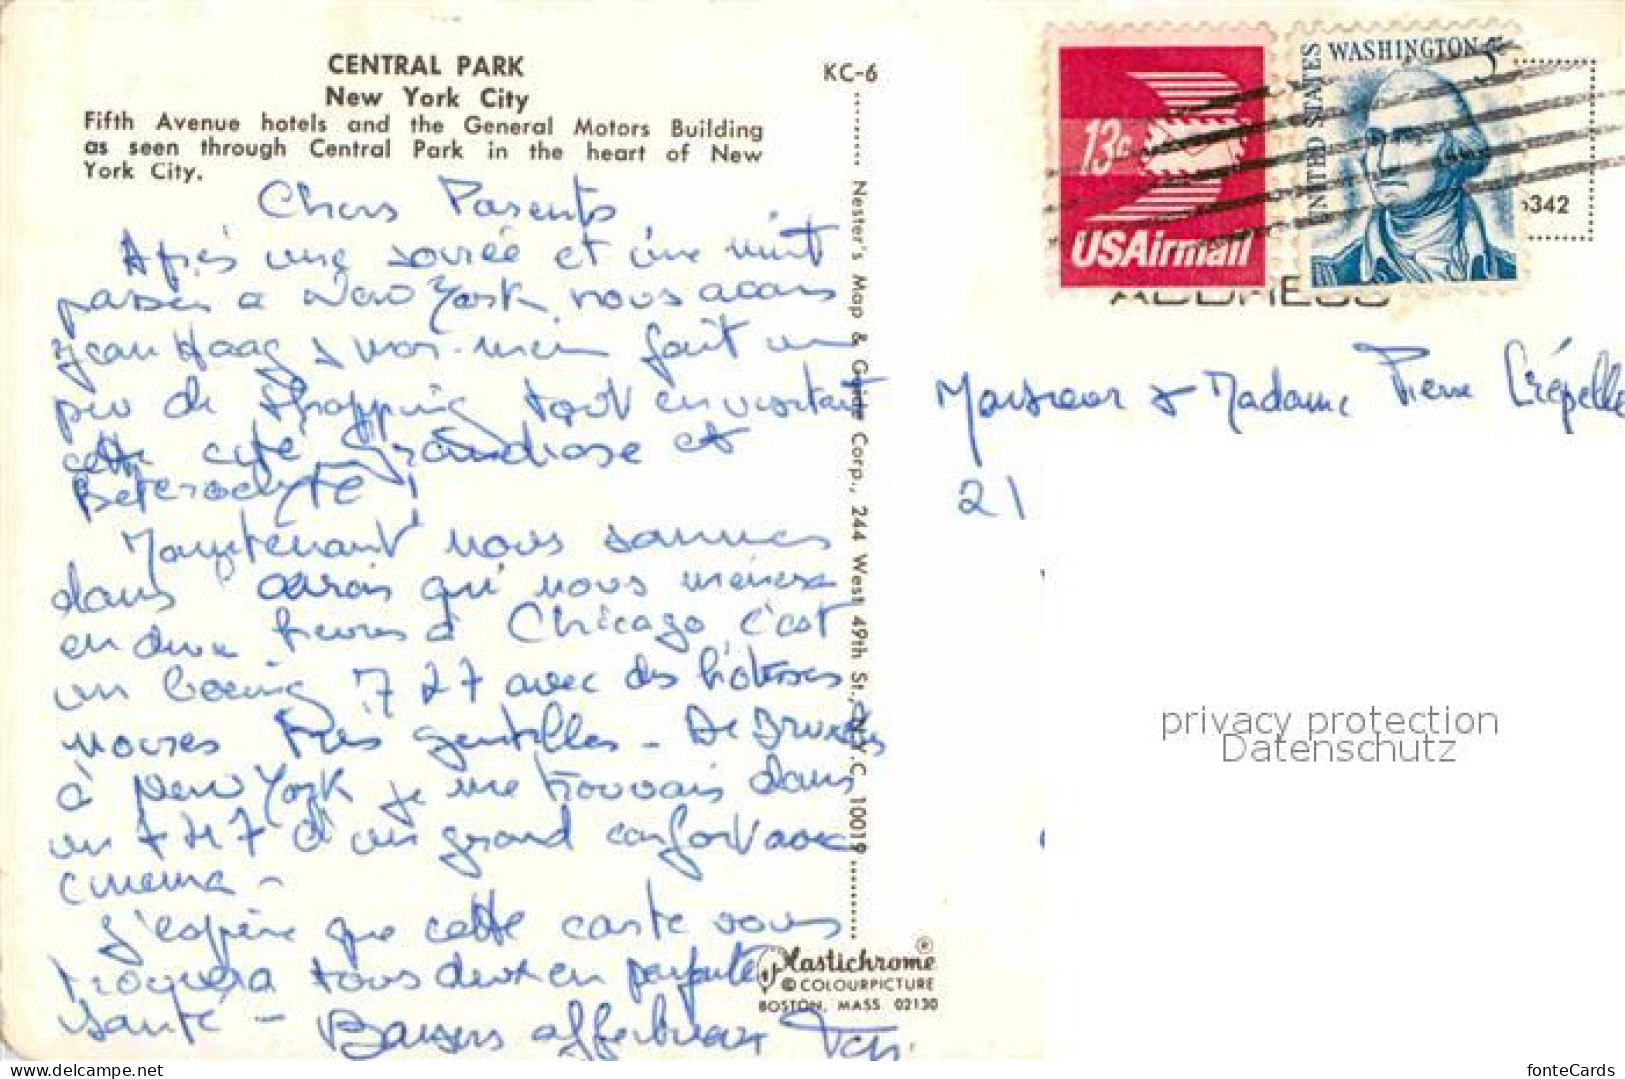 CENTRAL PARK
New York City
Fifth Avenue hotels and the General Motors Building
as seen through Central Park in the heart of New
York City.
KC-6
Chers Parents
Après une soirée et une nuit
passées à New York nous avons
Jean Haag & moi-même fait un
peu de shopping tout en visitant
cette cité grandiose et
heteroclyte !
Maintenant nous sommes
dans avion qui nous mènera
en deux heures à Chicago, c'est
un boeing 727 avec des hôtesses
noires très gentilles - De Bruxelles
à New York je me trouvais dans
un 747 d'un grand confort avec
cinema -
J'espère que cette carte vous
trouvera tous deux en parfaite
santé - Baisers affectueux
Nester's Map & Guide Corp., 244 West 49th St., N.Y.C. 10019
Plastichrome ®
© COLOURPICTURE
BOSTON, MASS. 02130
13c
USAirmail
UNITED STATES
WASHINGTON 5c
342
ADDRESS
Monsieur & Madame Pierre Crépelle
21
privacy protection
Datenschutz
www.delcampe.net
fonteCards